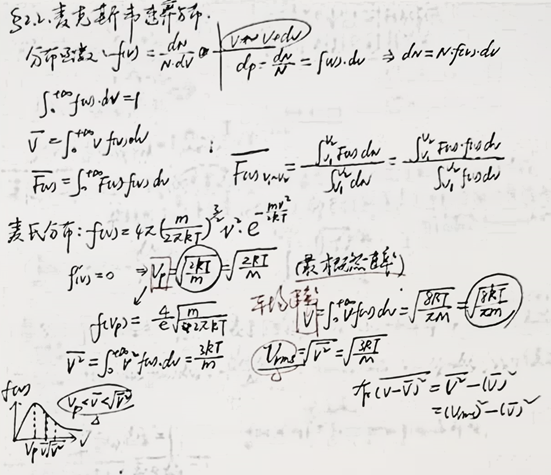 §2.2. 麦克斯韦速率分布.
分布函数: f(v) = dN/(N·dv) v~v+dv dp = dN/N = f(v)·dv ⇒ dN = N·f(v)·dv
∫₀^{+∞} f(v)·dv = 1
v̄ = ∫₀^{+∞} v f(v) dv
\overline{F(v)} = ∫₀^{+∞} F(v) f(v) dv ; \overline{F(v)}_{v₁~v₂} = ∫_{v₁}^{v₂} F(v) dN / ∫_{v₁}^{v₂} dN = ∫_{v₁}^{v₂} F(v)·f(v) dv / ∫_{v₁}^{v₂} f(v) dv
麦氏分布: f(v) = 4π (m/(2πkT))^{3/2} v²·e^{-mv²/(2kT)}
f'(v) = 0 ⇒ v_p = √(2kT/m) = √(2kT/m) (最概然速率)
f(v_p) = (4/e) √(m/(2πkT)) 平均速率 v̄ = ∫₀^{+∞} v f(v) dv = √(8kT/(πm)) = √(8kT/(πm))
\overline{v²} = ∫₀^{+∞} v² f(v)·dv = 3kT/m v_{rms} = √\overline{v²} = √(3kT/m)
\overline{(v-v̄)²} = \overline{v²} - (v̄)²
= (v_{rms})² - (v̄)²
f(v) v_p < v̄ < √\overline{v²}
v_p v̄ √\overline{v²} v